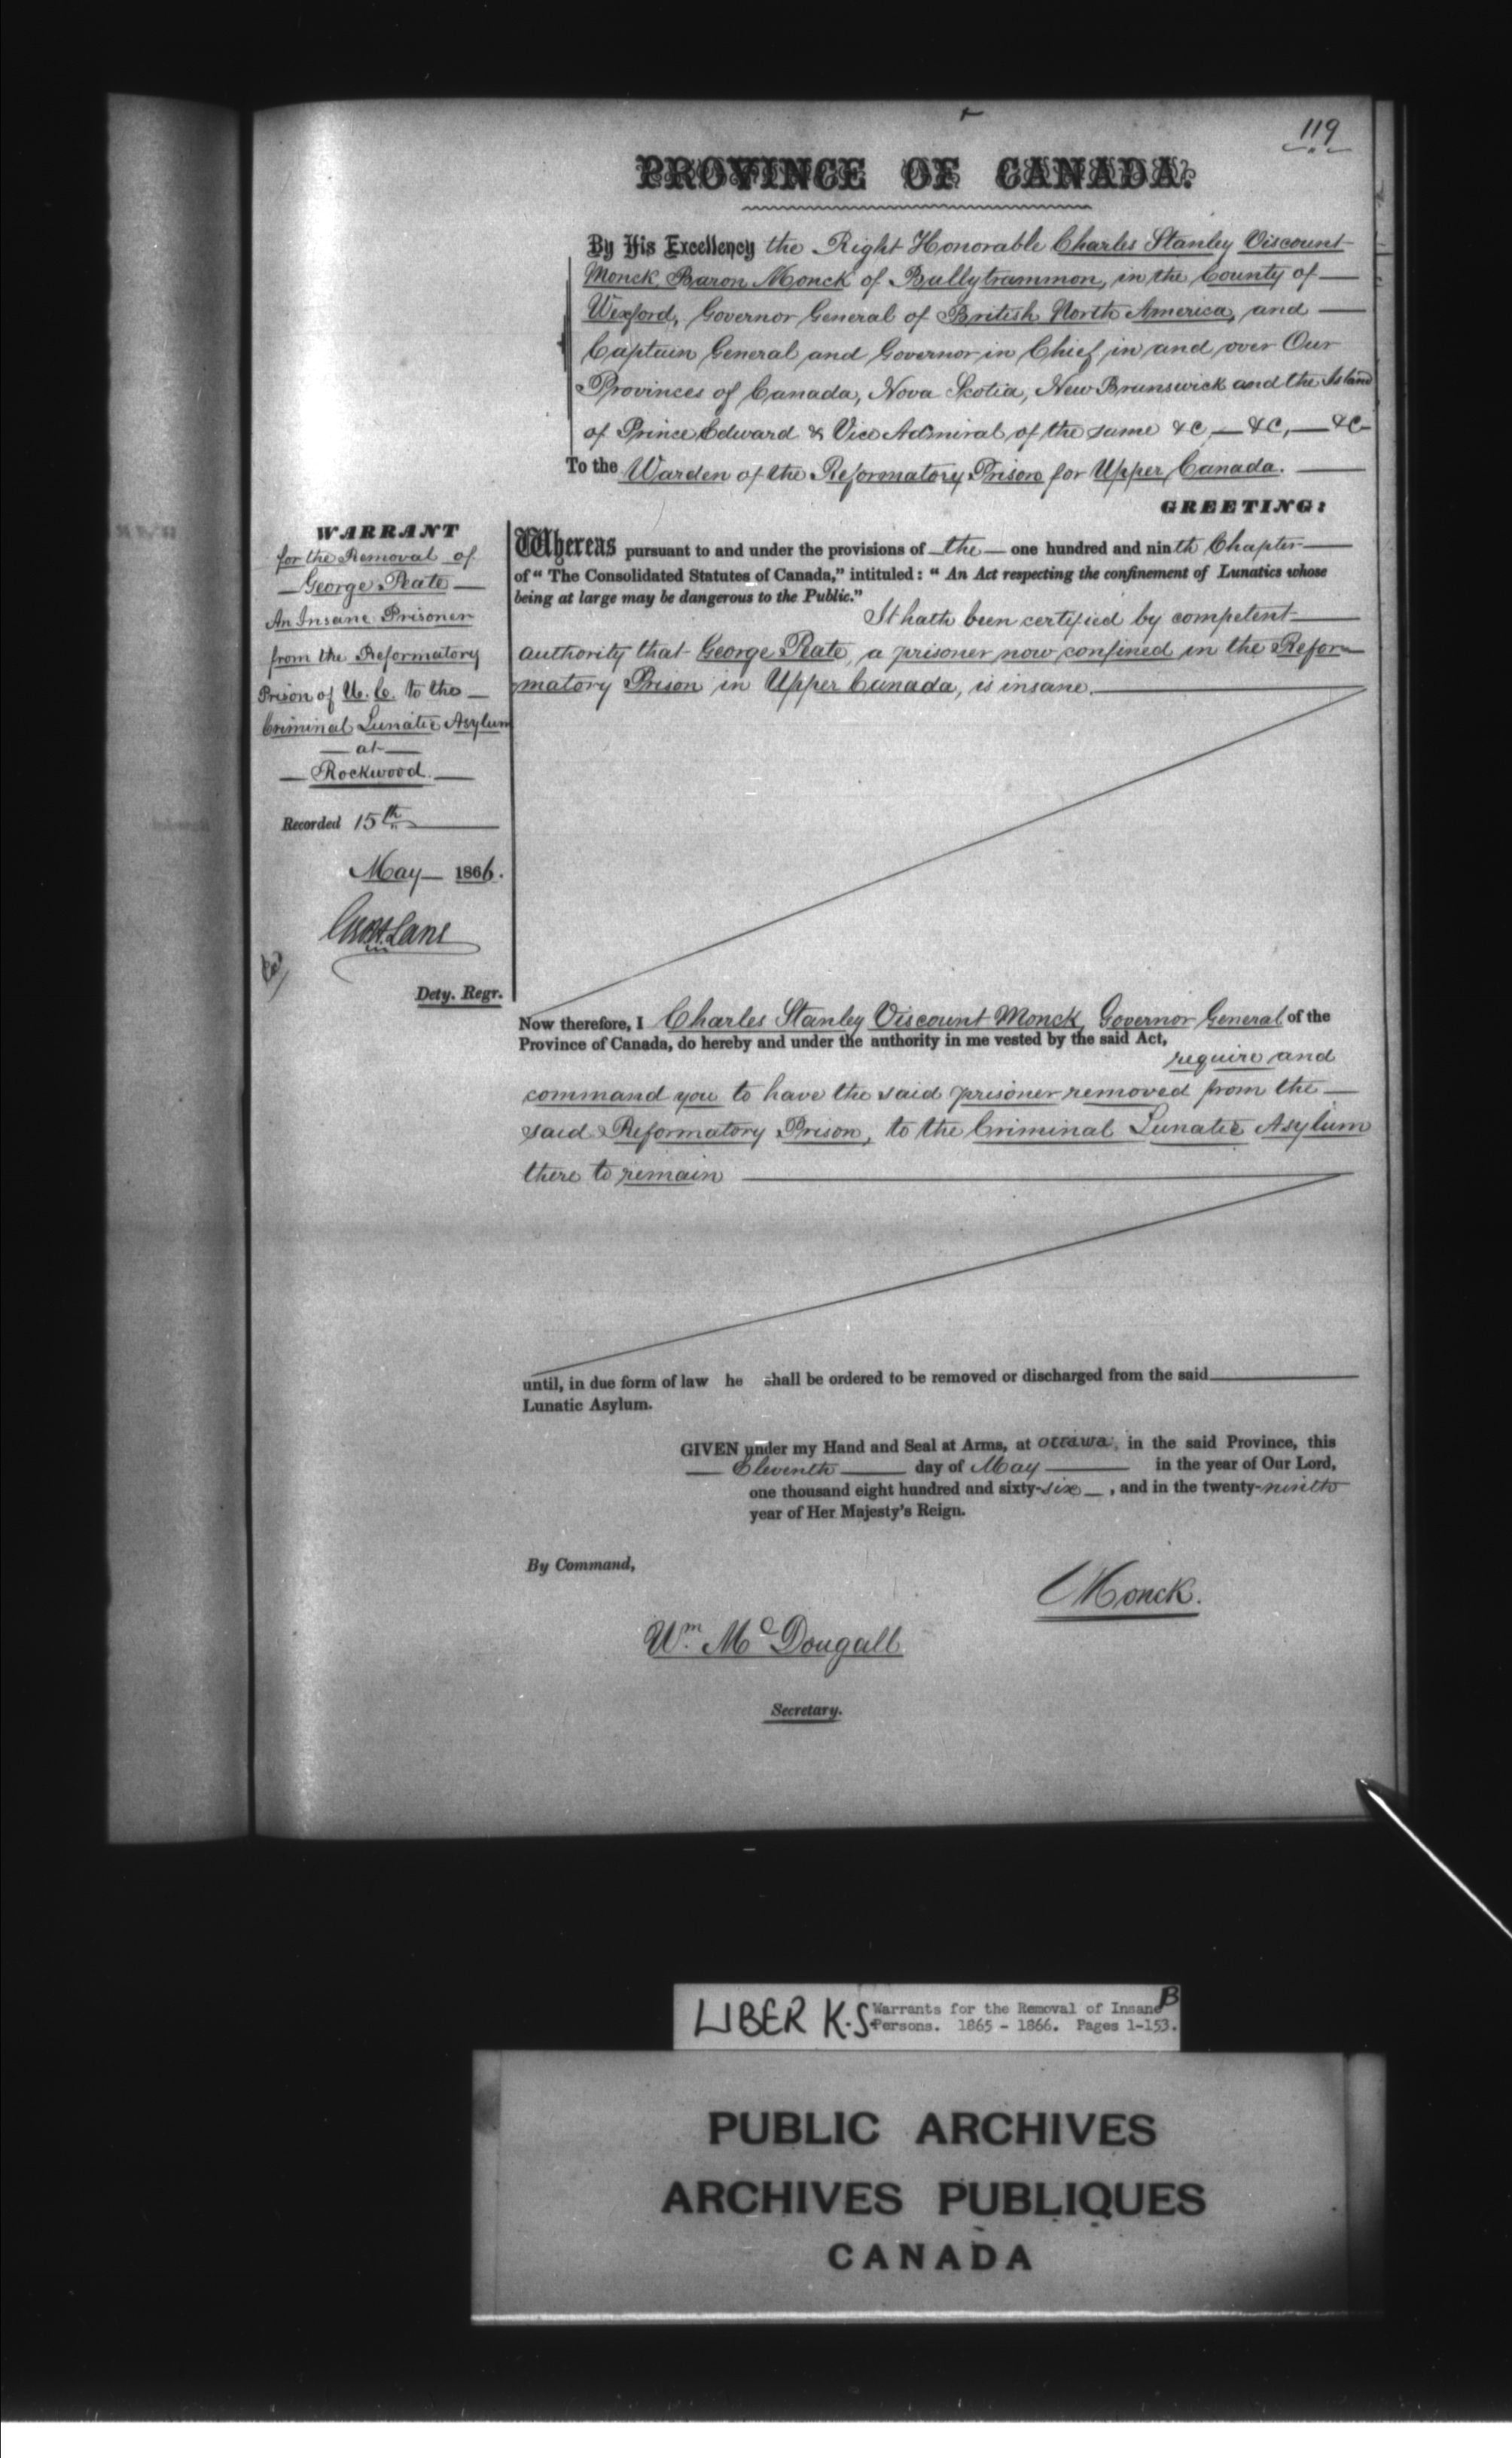 119
PROVINCE OF CANADA.
By His Excellency the Right Honorable Charles Stanley Viscount
Monck Baron Monck of Ballytrammon, in the County of
Wexford, Governor General of British North America, and
Captain General and Governor in Chief, in and over Our
Provinces of Canada, Nova Scotia, New Brunswick and the Island
of Prince Edward & Vice Admiral of the same &c, — &c, — &c
To the Warden of the Reformatory Prison for Upper Canada.
GREETING:
WARRANT
for the Removal of
George Peate
An Insane Prisoner
from the Reformatory
Prison of U. C. to the
Criminal Lunatic Asylum
at
Rockwood.
Recorded 15th
May 1866.
Lane
Dety. Regr.
Whereas pursuant to and under the provisions of the one hundred and ninth Chapter
of "The Consolidated Statutes of Canada," intituled: "An Act respecting the confinement of Lunatics whose
being at large may be dangerous to the Public."
It hath been certified by competent
authority that George Peate, a prisoner now confined in the Refor-
matory Prison in Upper Canada, is insane.
Now therefore, I Charles Stanley Viscount Monck, Governor General of the
Province of Canada, do hereby and under the authority in me vested by the said Act,
require and
command you to have the said prisoner removed from the
said Reformatory Prison, to the Criminal Lunatic Asylum
there to remain
until, in due form of law he shall be ordered to be removed or discharged from the said
Lunatic Asylum.
GIVEN under my Hand and Seal at Arms, at Ottawa, in the said Province, this
Eleventh day of May in the year of Our Lord,
one thousand eight hundred and sixty-six, and in the twenty-ninth
year of Her Majesty's Reign.
By Command,
Monck.
Wm. McDougall
Secretary.
LIBER K.S. Warrants for the Removal of Insane B
Persons. 1865 - 1866. Pages 1-153.
PUBLIC ARCHIVES
ARCHIVES PUBLIQUES
CANADA